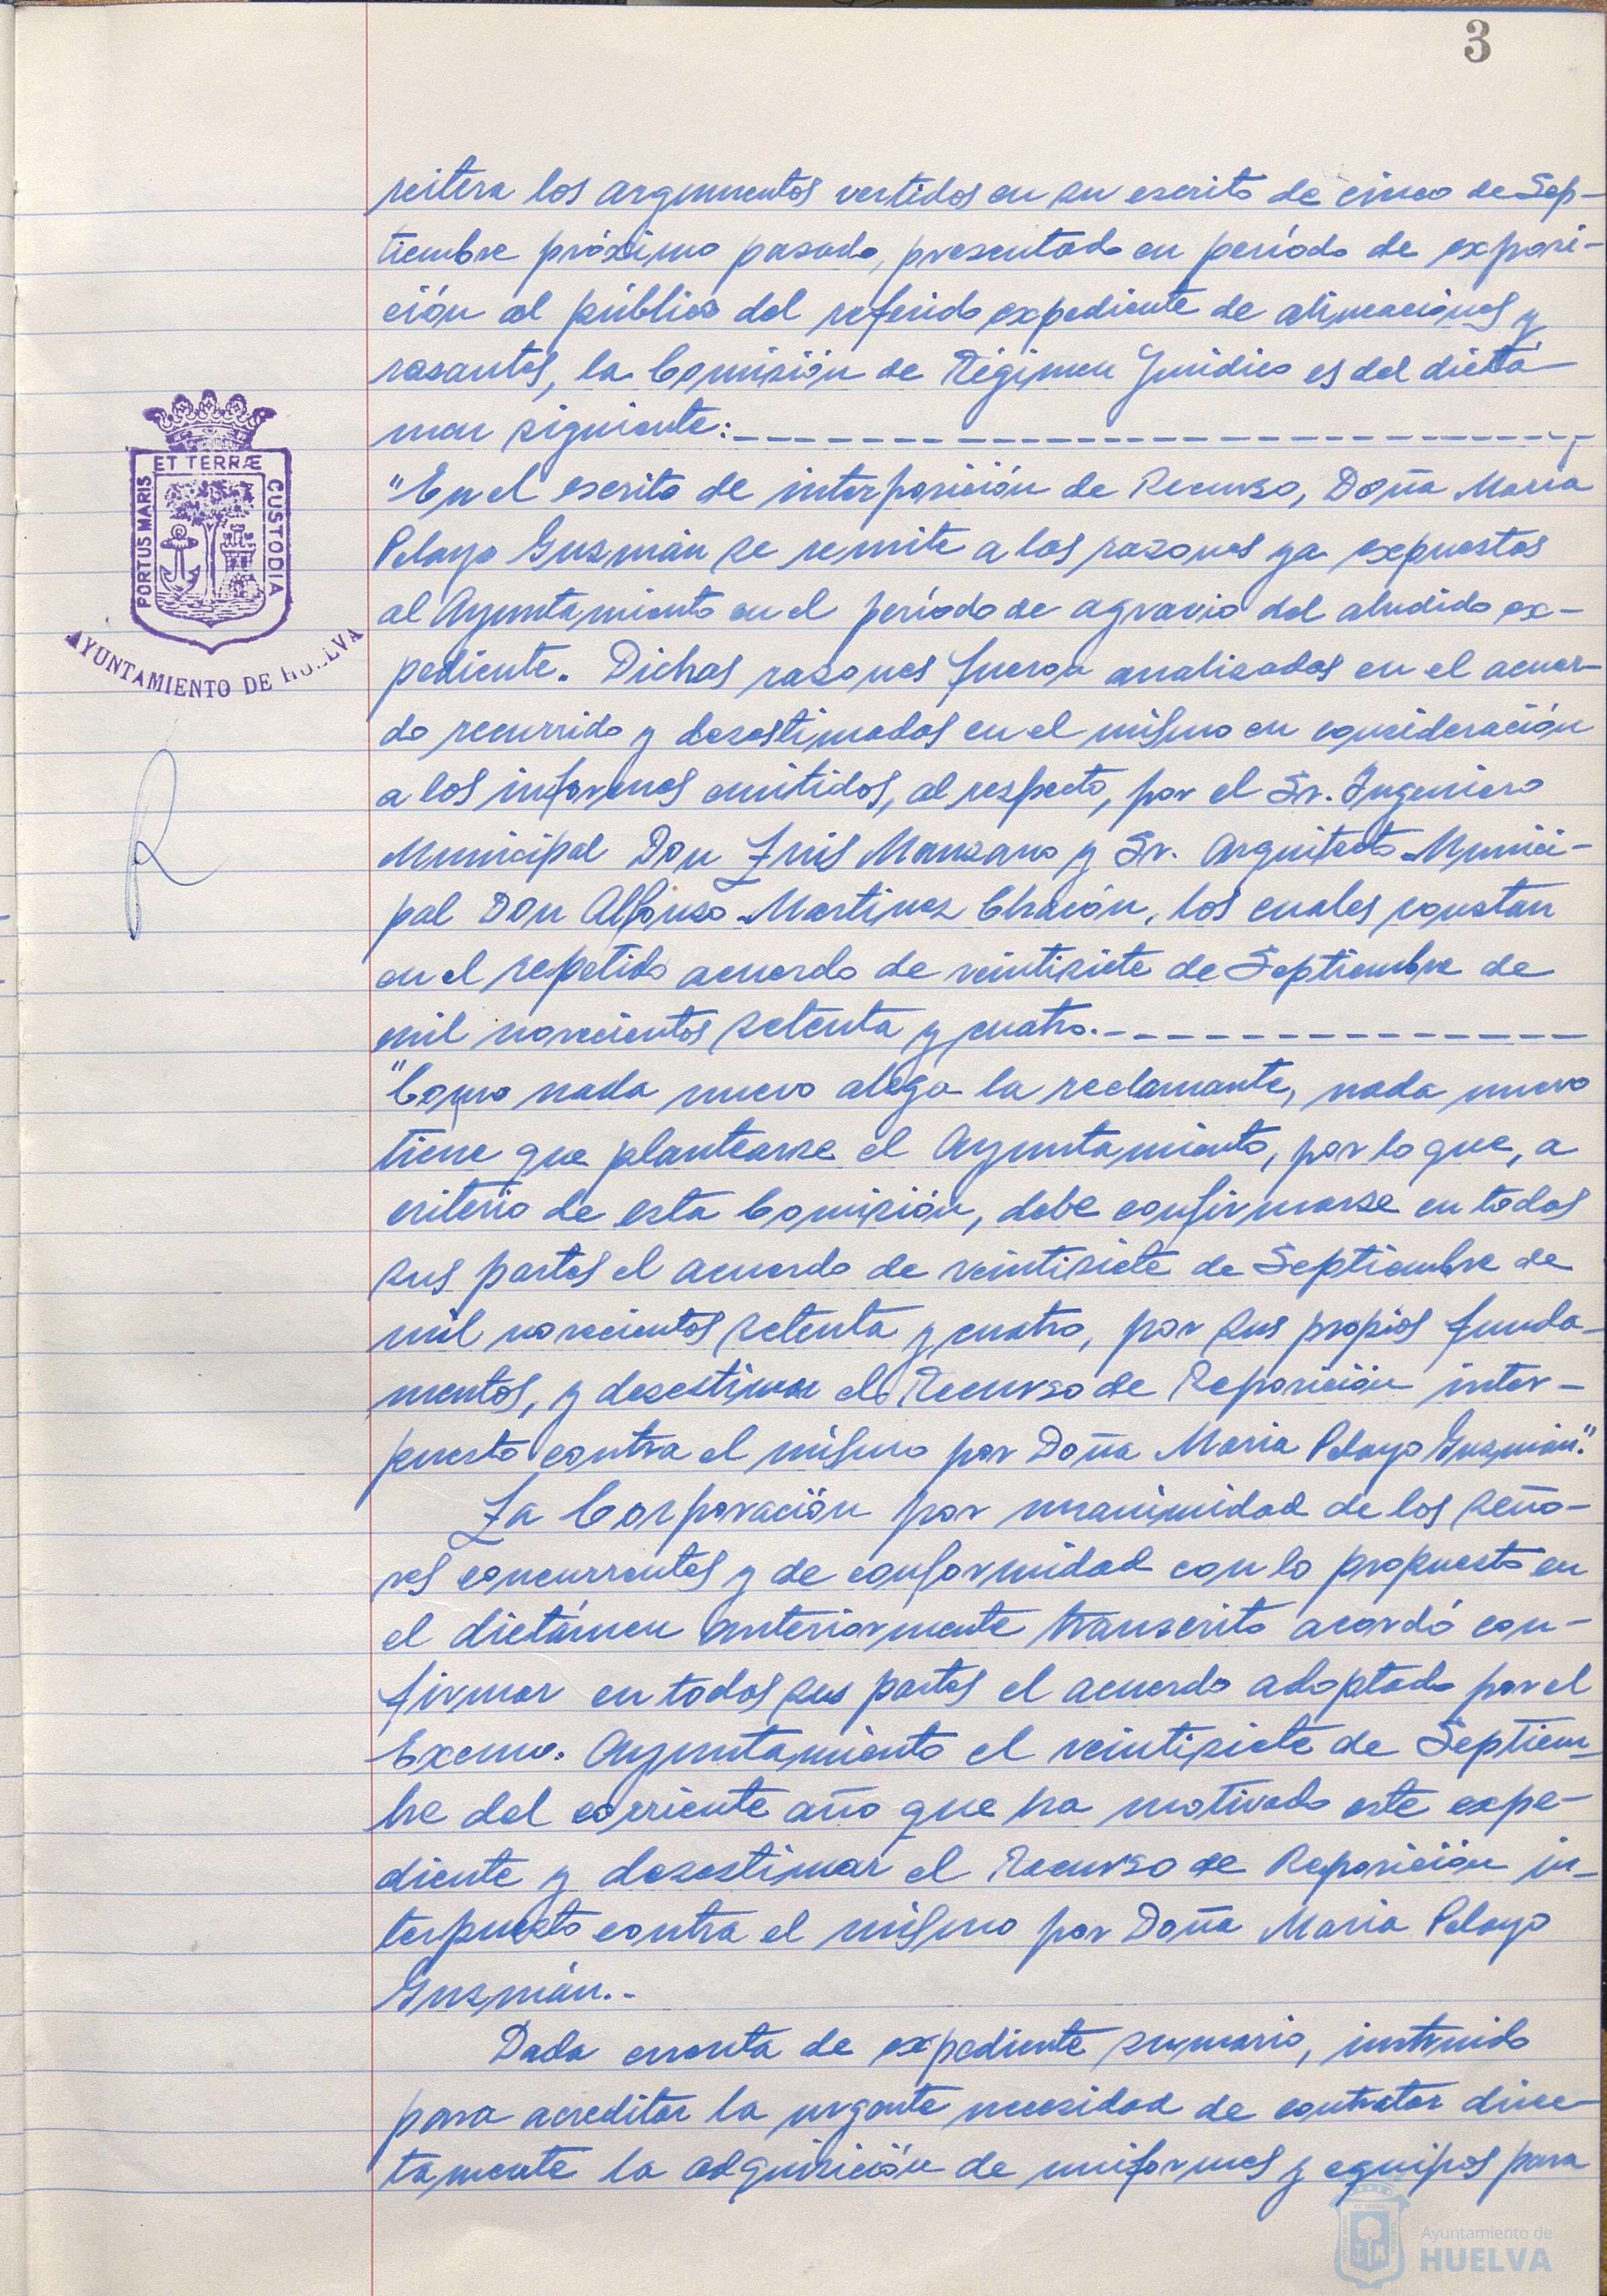 3
reitera los argumentos vertidos en su escrito de cinco de Sep-
tiembre próximo pasado, presentado en período de exposi-
ción al público del referido expediente de alineaciones y
rasantes, la Comisión de Régimen Jurídico es del dictá-
men siguiente:
"En el escrito de interposición de Recurso, Doña María
Pelayo Guzmán se remite a las razones ya expuestas
al Ayuntamiento en el período de agravio del aludido ex-
pediente. Dichas razones fueron analizadas en el acuer-
do recurrido y desestimadas en el mismo en consideración
a los informes emitidos, al respecto, por el Sr. Ingeniero
Municipal Don Luis Manzano y Sr. Arquitecto Munici-
pal Don Alfonso Martinez Chacón, los cuales constan
en el repetido acuerdo de veintisiete de Septiembre de
mil novecientos setenta y cuatro.-
"Como nada nuevo alega la reclamante, nada nuevo
tiene que plantearse el Ayuntamiento, por lo que, a
criterio de esta Comisión, debe confirmarse en todas
sus partes el acuerdo de veintisiete de Septiembre de
mil novecientos setenta y cuatro, por sus propios funda-
mentos, y desestimar el Recurso de Reposición inter-
puesto contra el mismo por Doña Maria Pelayo Guzmán."
La Corporación por unanimidad de los seño-
res concurrentes y de conformidad con lo propuesto en
el dictámen anteriormente transcrito acordó con-
firmar en todas sus partes el acuerdo adoptado por el
Excmo. Ayuntamiento el veintisiete de Septiem-
bre del corriente año que ha motivado este expe-
diente y desestimar el Recurso de Reposición in-
terpuesto contra el mismo por Doña Maria Pelayo
Guzmán.-
Dada cuenta de expediente sumario, instruido
para acreditar la urgente necesidad de contratar direc-
tamente la adquisición de uniformes y equipos para
PORTUS MARIS ET TERRÆ CUSTODIA
AYUNTAMIENTO DE HUELVA
Ayuntamiento de
HUELVA